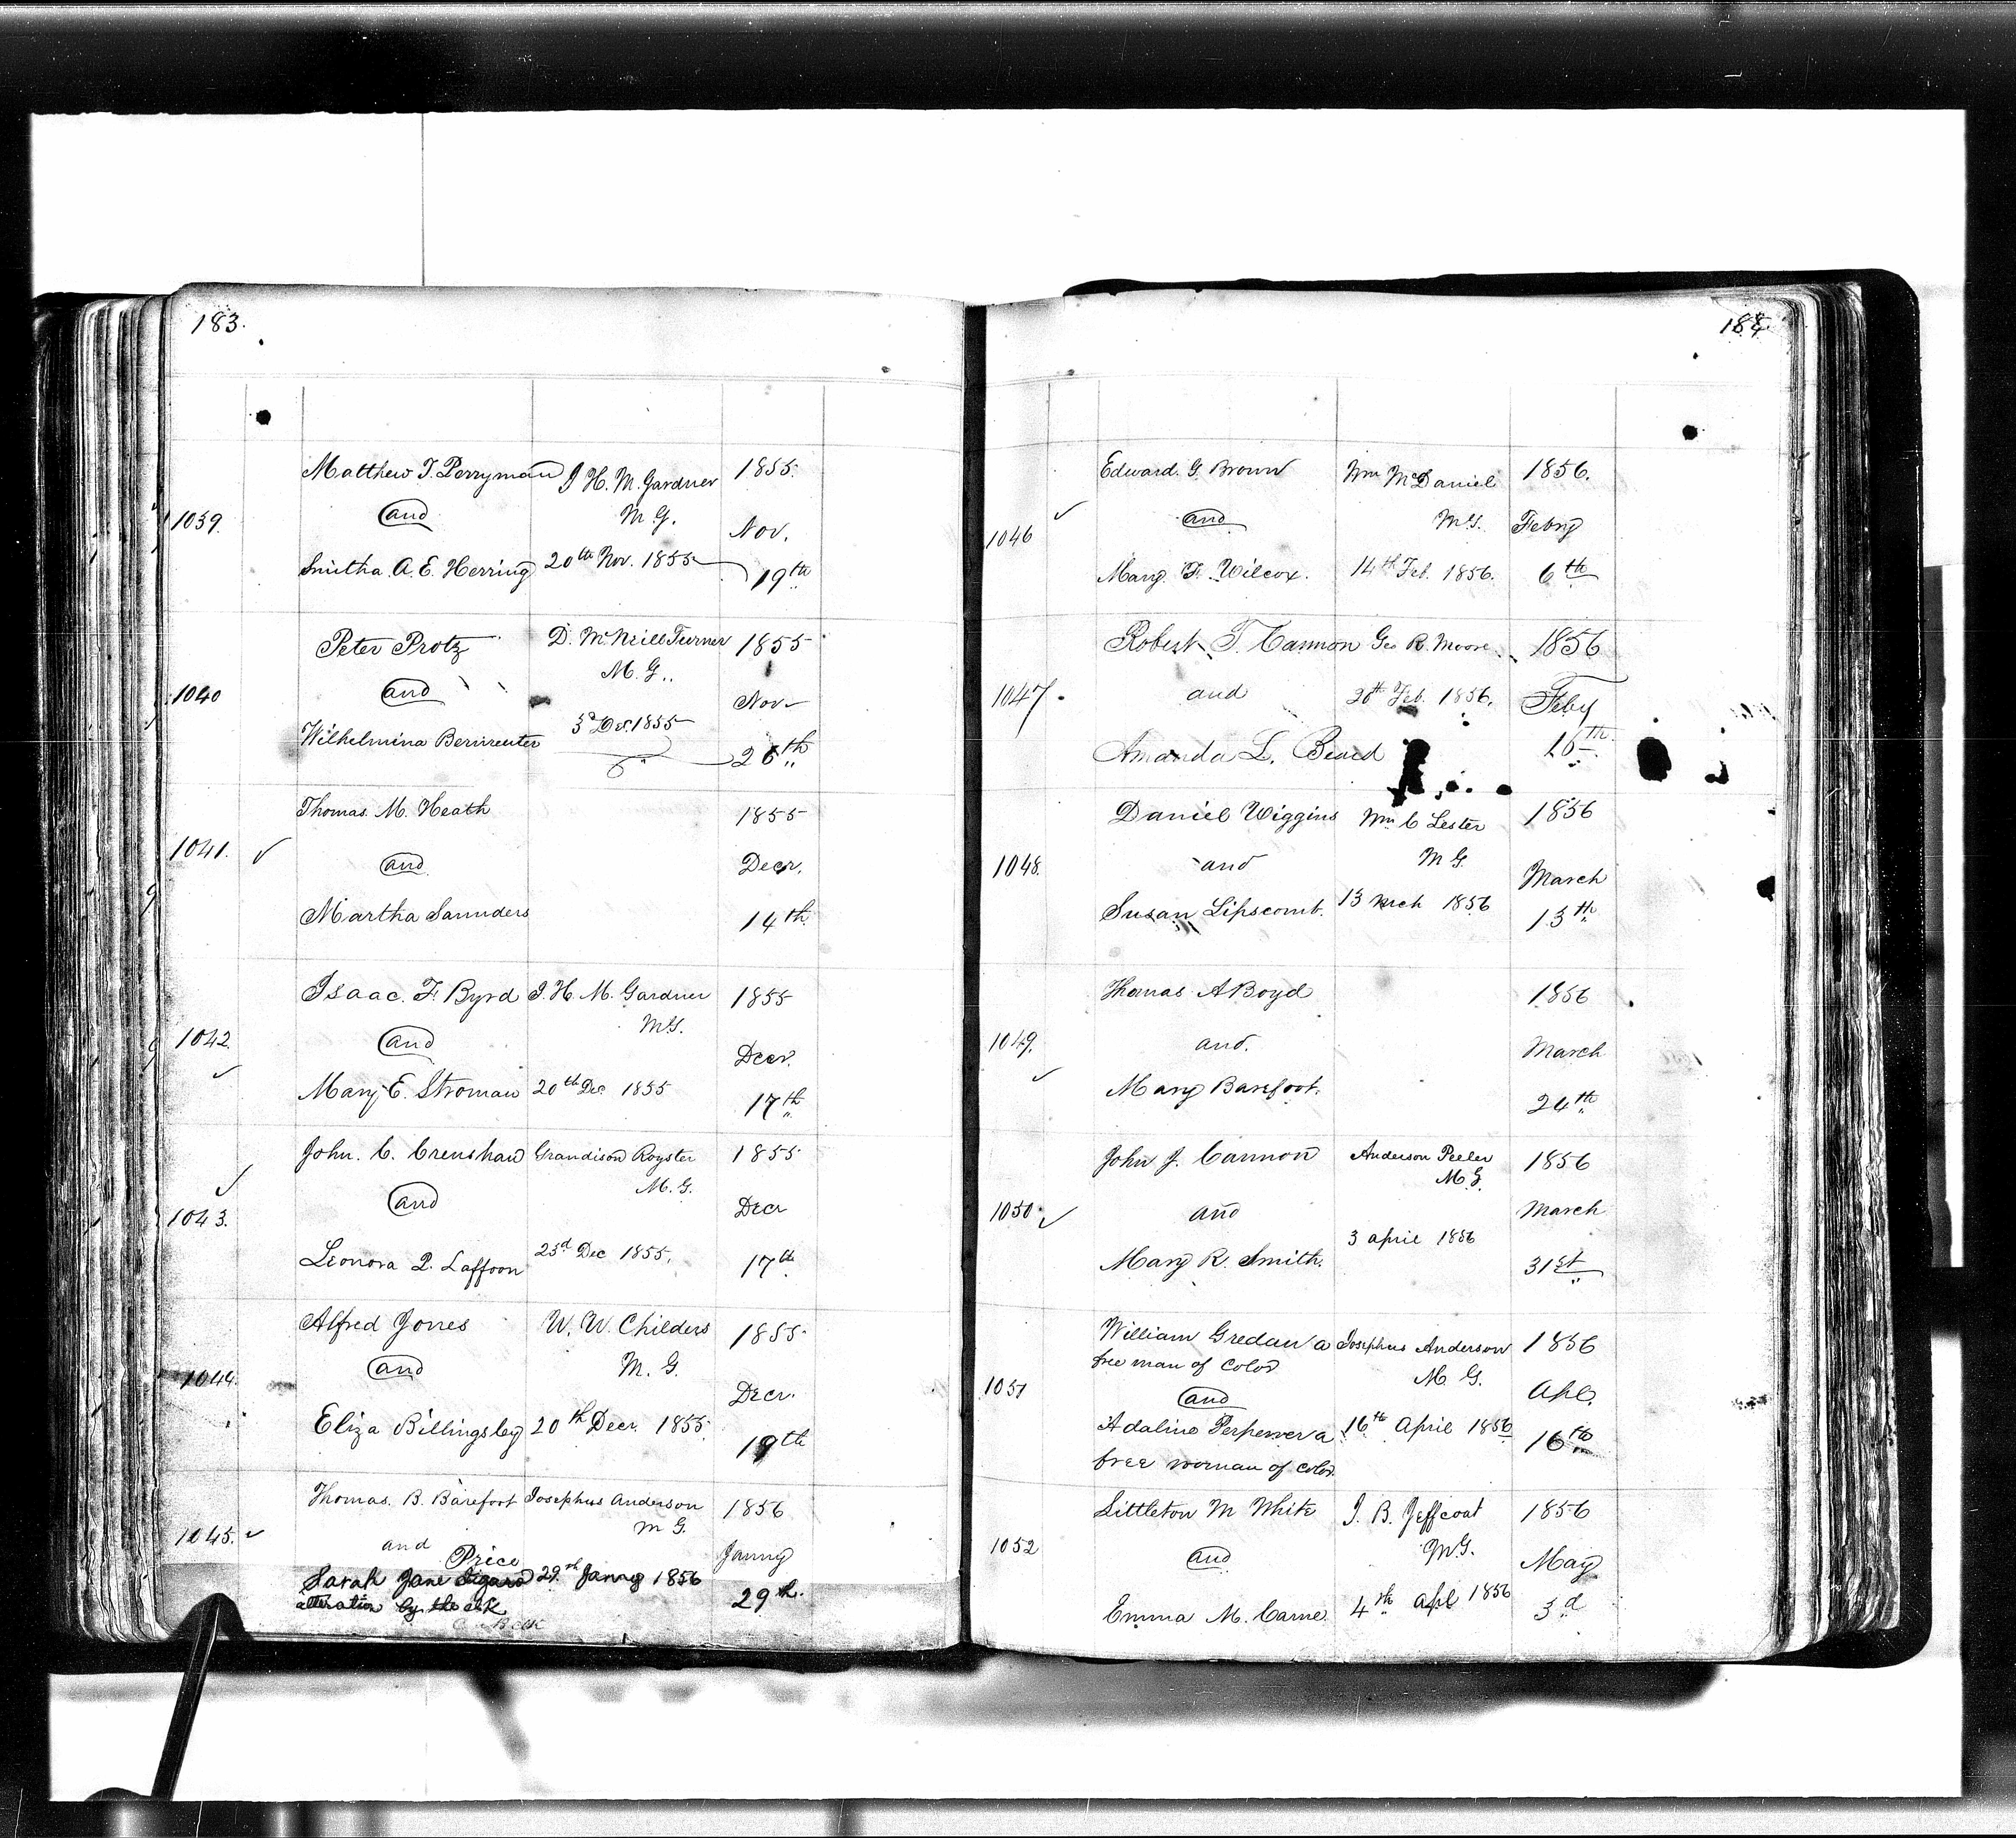 183.
Matthew T. Perryman J H. M. Gardner 1855
1039 and M G. Nov.
Smitha A. E. Herring 20th Nov. 1855 19th
Peter Protz D. McNeill Turner 1855
M. G.
1040 and Nov
3d Dec. 1855
Wilhelmina 26th
Thomas M. Heath 1855
1041. and Decr.
Martha Saunders 14th
Isaac. F. Byrd J. H. M. Gardner 1855
MG.
1042. and Decr.
Mary E. Stroman 20th Dec 1855 17th
John. C. Crenshaw Grandison Royster 1855
M. G.
1043. and Decr
Leonora P. Laffoon 23d Dec 1855. 17th
Alfred Jones W. W. Childers 1855
1044. and M. G. Decr.
Eliza Billingsley 20th Decr. 1855 19th
Thomas. B. Barefoot Josephus Anderson 1856
M G.
1045. and Janny
Price
Sarah Jane 29th Janny 1856 29th.
alteration by the clk
184
Edward. G. Brown Wm McDaniel 1856.
1046 and MG. Febry
Mary F. Wilcox. 14th Feb. 1856. 6th
Robert T. Cannon Geo R. Moore 1856
1047. and 20th Feb. 1856. Feby
Amanda L. Beard 16th
Daniel Wiggins Wm C Lester 1856
1048. and M G. March
Susan Lipscomb. 13 Mch 1856 13th
Thomas A Boyd 1856
1049. and. March
Mary Barefoot. 24th
John J. Cannon Anderson Peeler 1856
M. G.
1050. and March
3 april 1856
Mary R. Smith. 31st
William Gredan a Josephus Anderson 1856
free man of Color M. G.
1051 and Apl.
Adaline a 16th April 1856 16th
free woman of color
Littleton M White J. B. Jeffcoat 1856
1052 and M G. May
Emma M. Carne 4th Apl 1856 3d